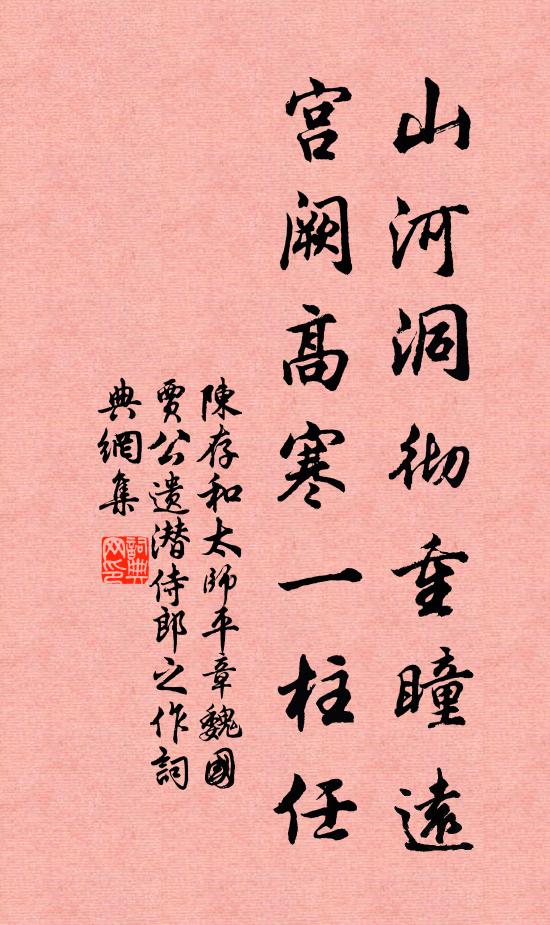 山河洞彻重瞳遠
宫阙高寒一柱任
陳存和太師平章魏國
賈公遗潜侍郎之作詞
典網集
詞典
网印